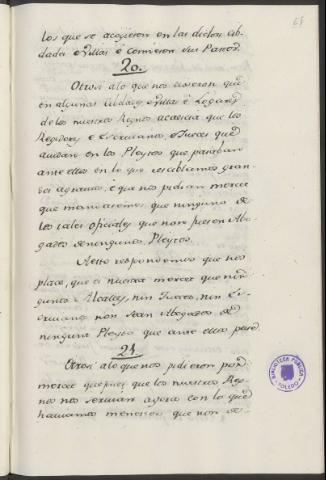 los que se acogieron en las dichas cib-
dades e Villas é comieron sus Panes.
20.
Otrosi a lo que nos dixeron que
en algunas Cibdades, e Villas e Logares
de los nuestros Regnos acaescia que los
Regidores, e Escrivanos, e Jueces que
ayudan en los Pleytos que pasaban
ante ellos en lo que rescibiamos gran-
des agravios, é que nos pedian merced
que mandasemos que ninguno de
los tales oficiales que non fuesen Abo-
gados de ningunos Pleytos.
A esto respondemos que nos
place, que es nuestra merced que nin-
gunos Alcalles, nin Jueces, nin Es-
crivanos non sean Abogados de
ningunt Pleyto que ante ellos
21.
Otrosi a lo que nos pidieron por
merced que pues que los nuestros Reg-
nos nos servian agora con lo que
haviamos menester que non de-
BIBLIOTECA PÚBLICA
TOLEDO